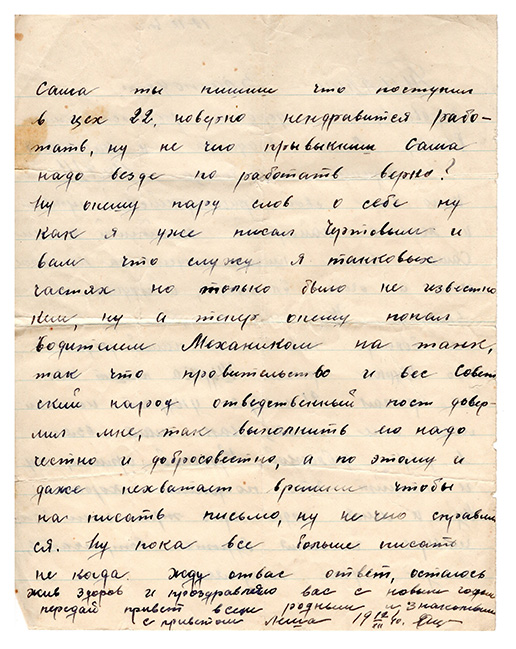 Саша ты пишиш что поступил
в цех 22, новерно ненравится рабо-
тать, ну не чего прывыкниш Саша
надо везде по работать верно?
Ну опишу пару слов о себе ну
как я уже писал Чертовым и
вам что служу я танковых
частях но только было не известно
кем, ну а тепер опишу попал
Водителем Механиком на танк,
так что правительство и вес Совет
ский народ отведственный пост довер-
мил мне, так выполнить его надо
честно и добросовестно, а по этому и
даже нехватает времени чтобы
на писать письмо, ну не чего справим
ся. Ну пока все больше писать
не когда. Жду отвас ответ, остаюсь
жив здоров и проздравляю вас с новым годом
передай привет всем родным и знакомым
с приветом Леша 19 12/XII 40.